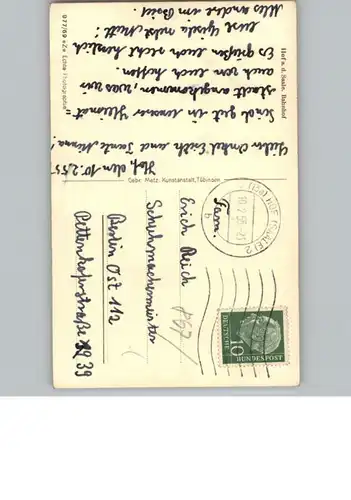 977/69 «Ze» Echte Photographie
Hof a. d. Saale, Bahnhof
Hof, den 10.2.55
Lieber Onkel Erich und Tante Minna!
Sind gut in unserer Heimat=
stadt angekommen, was wir
auch von Euch hoffen.
Es grüßen Euch recht herzlich
Eure Gisela nebst Mutti!
Alles andere im Brief.
Gebr. Metz, Kunstanstalt, Tübingen
(13a) HOF (SAALE) 2
10.2.55
b
Fam.
Erich Reich
Schuhmachermeister
Berlin Ost 112
Pettenkoferstraße 39
DEUTSCHE BUNDESPOST
10